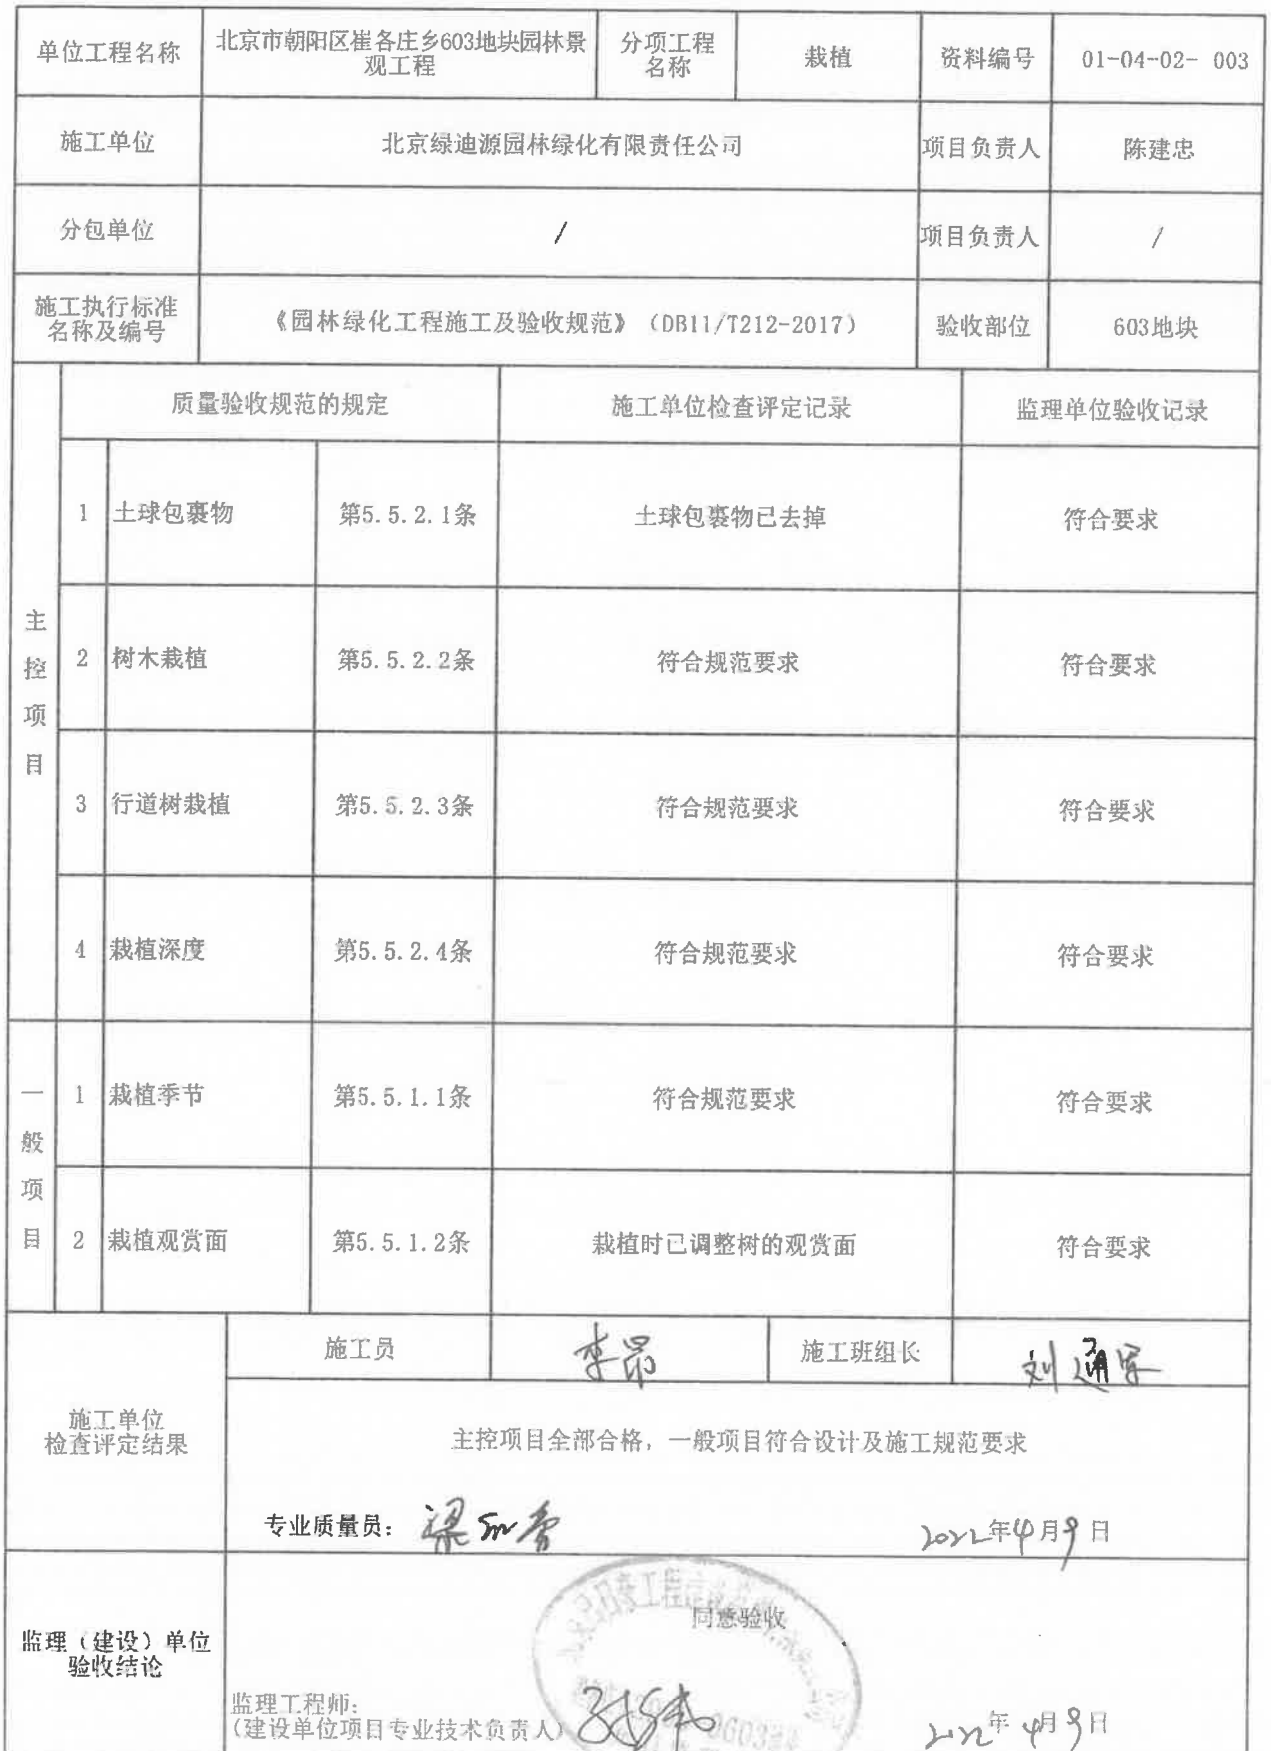 单位工程名称
北京市朝阳区崔各庄乡603地块园林景
观工程
分项工程
名称
栽植
资料编号
01-04-02- 003
施工单位
北京绿迪源园林绿化有限责任公司
项目负责人
陈建忠
分包单位
/
项目负责人
/
施工执行标准
名称及编号
《园林绿化工程施工及验收规范》（DB11/T212-2017）
验收部位
603地块
主控项目
质量验收规范的规定
施工单位检查评定记录
监理单位验收记录
1 土球包裹物 第5.5.2.1条 土球包裹物已去掉 符合要求
2 树木栽植 第5.5.2.2条 符合规范要求 符合要求
3 行道树栽植 第5.5.2.3条 符合规范要求 符合要求
4 栽植深度 第5.5.2.4条 符合规范要求 符合要求
一般项目
1 栽植季节 第5.5.1.1条 符合规范要求 符合要求
2 栽植观赏面 第5.5.1.2条 栽植时已调整树的观赏面 符合要求
施工单位
检查评定结果
施工员
李昂
施工班组长
刘通军
主控项目全部合格，一般项目符合设计及施工规范要求
专业质量员：
2022年4月9日
监理（建设）单位
验收结论
同意验收
监理工程师：
（建设单位项目专业技术负责人）
2022年4月9日